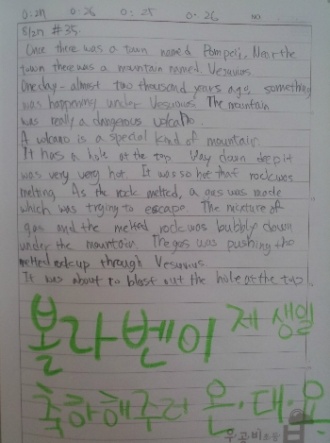 0:27 0:26 0:25 0:26
8/27 #35.
Once there was a town named Pompeii. Near the
town there was a mountain named Vesuvius.
One day - almost two thousand years ago, something
was happening under Vesuvious. The mountain
was really a dangerous volcano.
A volcano is a special kind of mountain.
It has a hole at the top. Way down deep it
was very very hot. It was so hot that rock was
melting. As the rock melted, a gas was made
which was trying to escape. The mixture of
gas and the melted rock was bubbly down
under the mountain. The gas was pushing the
melted rock up through Vesuvius
It was about to blast out the hole at the top
볼라벤이 제 생일
축하해주러 온·대·요